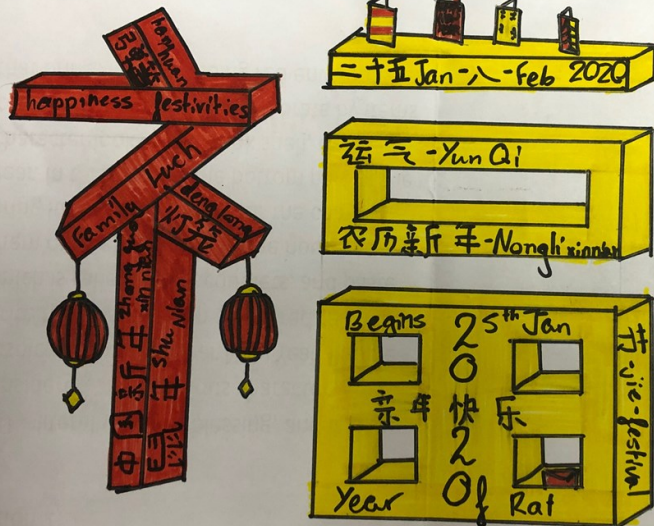 happiness festivities
Family luck
denglong
中国新年 zhong guo xin nian
鼠年 Shu Nian
二十五Jan-八-Feb 2020
运气-Yun Qi
农历新年-Nongli xinnian
Begins 25th Jan
2020
亲年快乐
Year of Rat
节-jie-festival